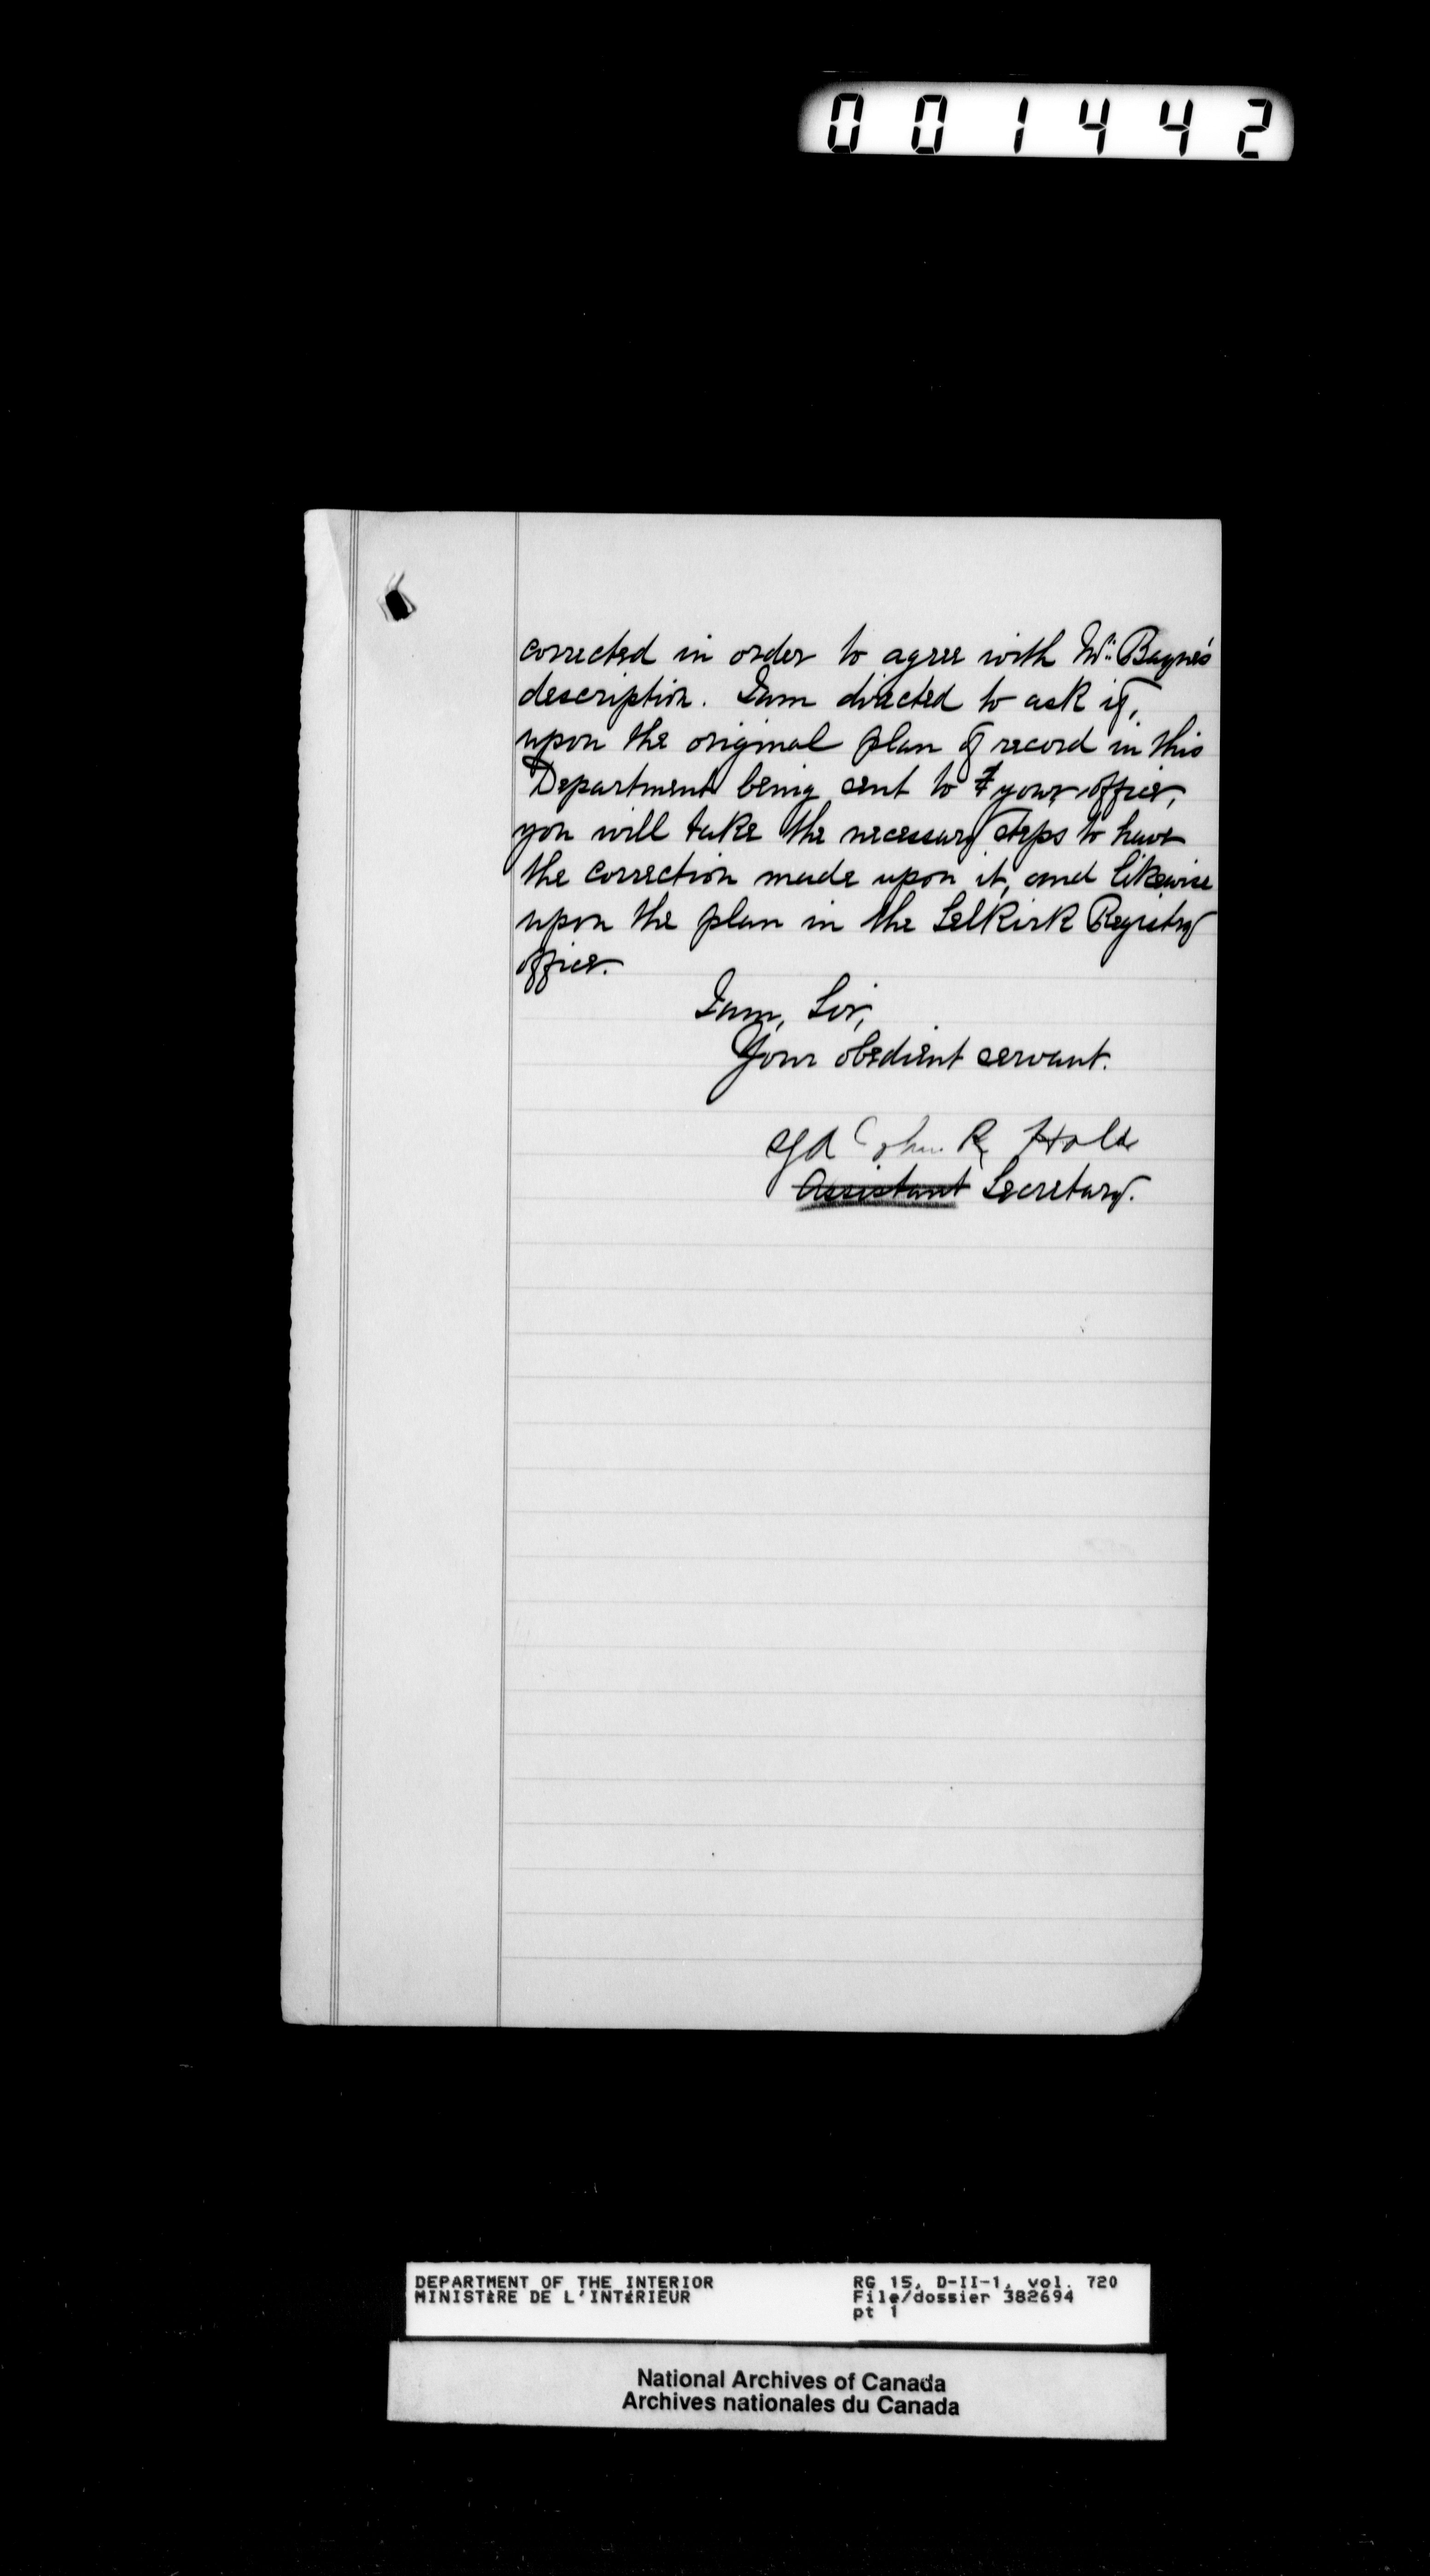 001442
corrected in order to agree with Mr. Bayne's
description. I am directed to ask if,
upon the original plan of record in this
Department being sent to your office,
you will take the necessary steps to have
the correction made upon it, and likewise
upon the plan in the Selkirk Registry
office.
I am, Sir,
Your obedient servant.
sgd John R Hall
Assistant Secretary.
DEPARTMENT OF THE INTERIOR
MINISTÈRE DE L'INTÉRIEUR
RG 15, D-II-1, vol. 720
File/dossier 382694
pt 1
National Archives of Canada
Archives nationales du Canada